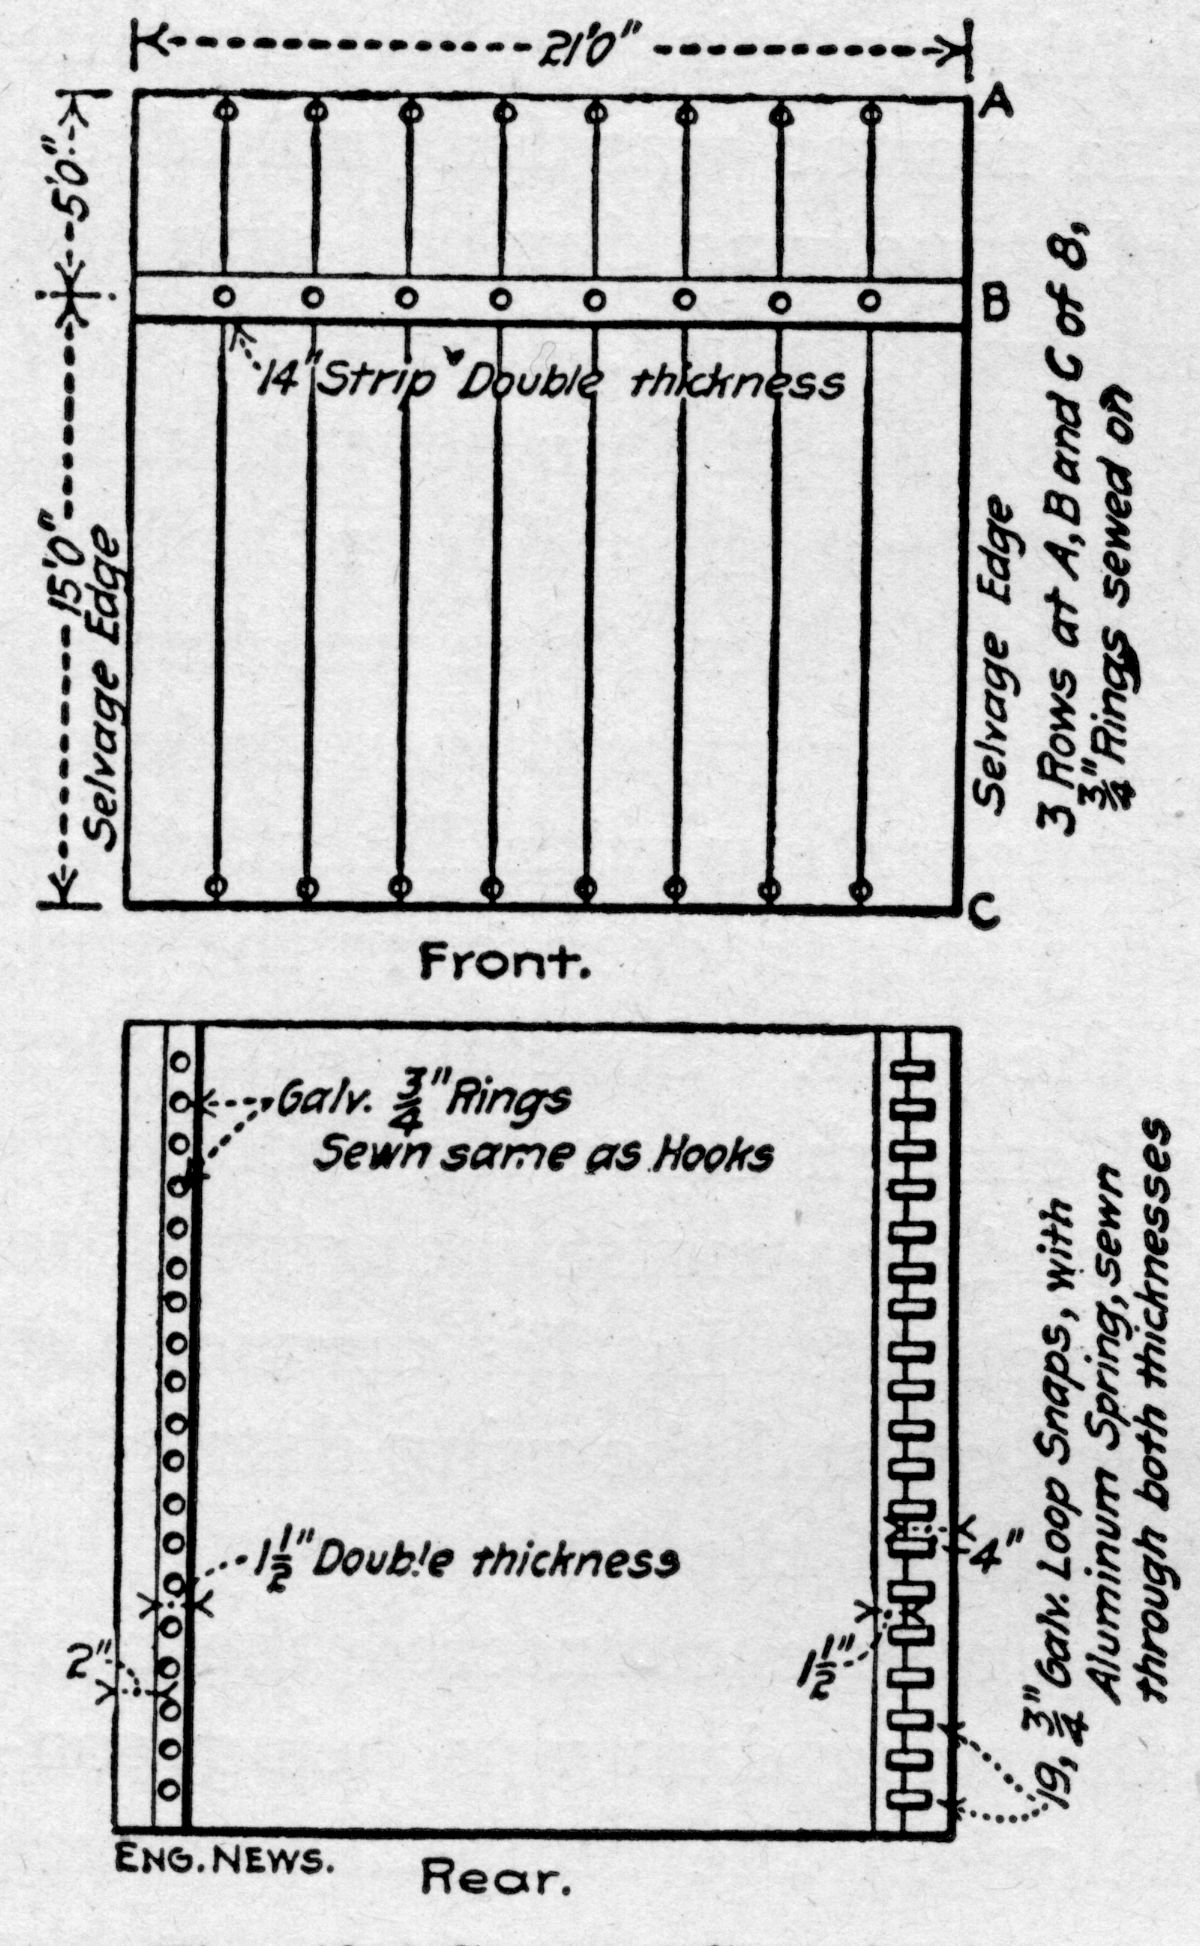 21'0"
A
5'0"
B
14" Strip Double thickness
15'0"
Selvage Edge
Selvage Edge
3 Rows at A, B and C of 8,
3/4" Rings sewed on
C
Front.
Galv. 3/4" Rings
Sewn same as Hooks
1 1/2" Double thickness
4"
2"
1 1/2"
19, 3/4" Galv. Loop Snaps, with
Aluminum Spring, sewn
through both thicknesses
ENG. NEWS.
Rear.